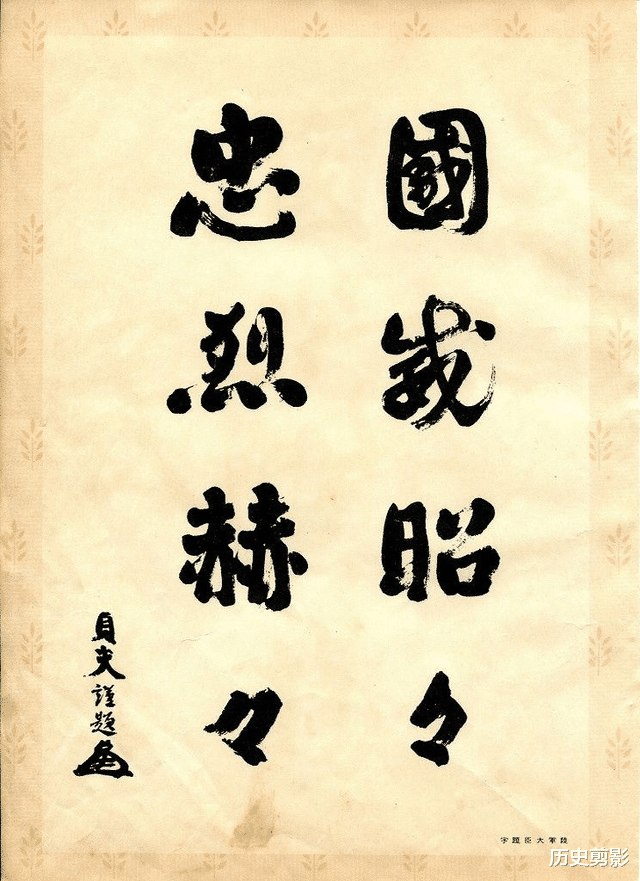 國威昭々
忠烈赫々
貞夫謹題
陸軍大臣題字
历史剪影